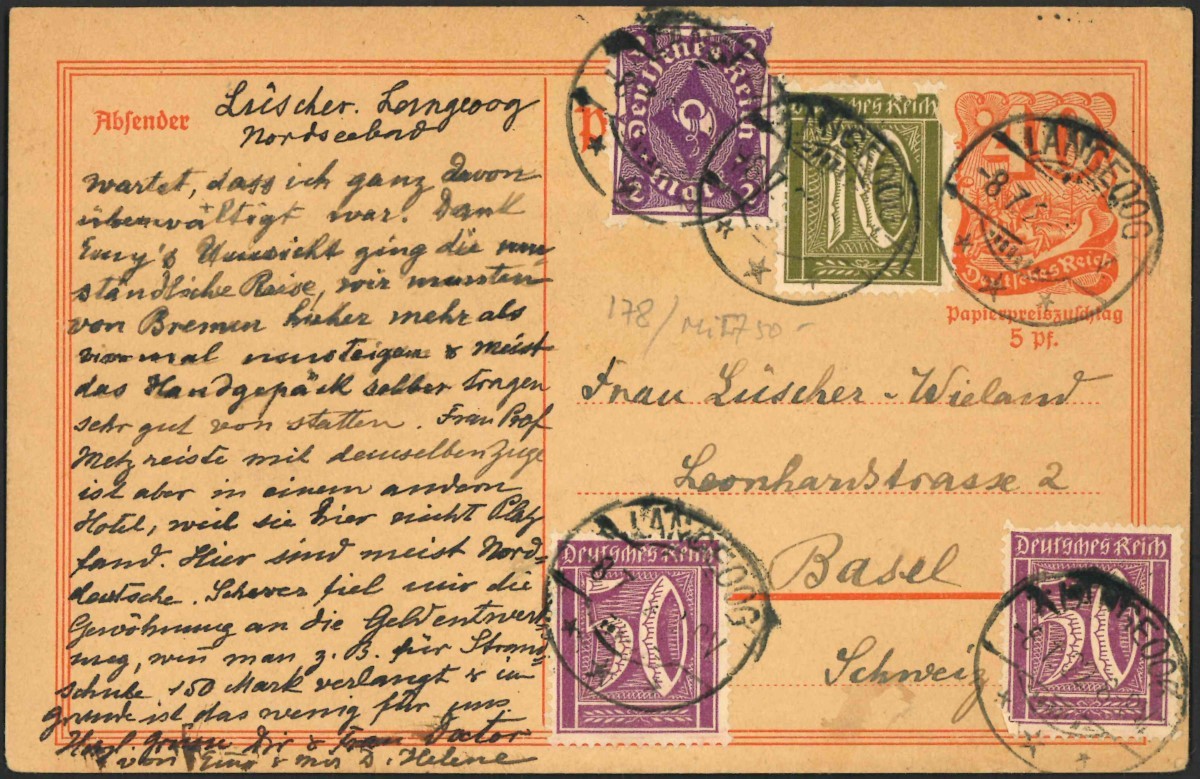 Absender
Lüscher. Langeoog
Nordseebad
wartet, dass ich ganz davon
überwältigt war. Dank
Emy's Umsicht ging die um
ständliche Reise, wir mussten
von Bremen hieher mehr als
mal umsteigen & meist
das Handgepäck selber tragen
sehr gut von statten. Frau Prof
Metz reiste mit demselben Zuge
ist aber in einem andern
Hotel, weil sie hier nicht Platz
fand. Hier sind meist Nord-
deutsche. Schwer fiel mir die
Gewöhnung an die Geldentwert
ung, wenn man z. B. für Strand-
schuhe 150 Mark verlangt & im
grunde ist das wenig für uns.
Herzl. Grüsse Dir & Doctor
von Emy & mir D. Helene
P
2 2
Deutsches Reich
2 Mark 2
Deutsches Reich
10
LANGEOOG
LANGEOOG
-8.7.
LANGEOOG
Deutsches Reich
Papierpreiszuschlag
5 Pf.
178/ Mi 750-
Frau Lüscher-Wieland
Leonhardstrasse 2
Basel
Schweiz
Deutsches Reich
50
LANGEOOG
-8.7.
Deutsches Reich
50
LANGEOOG
-8.7.